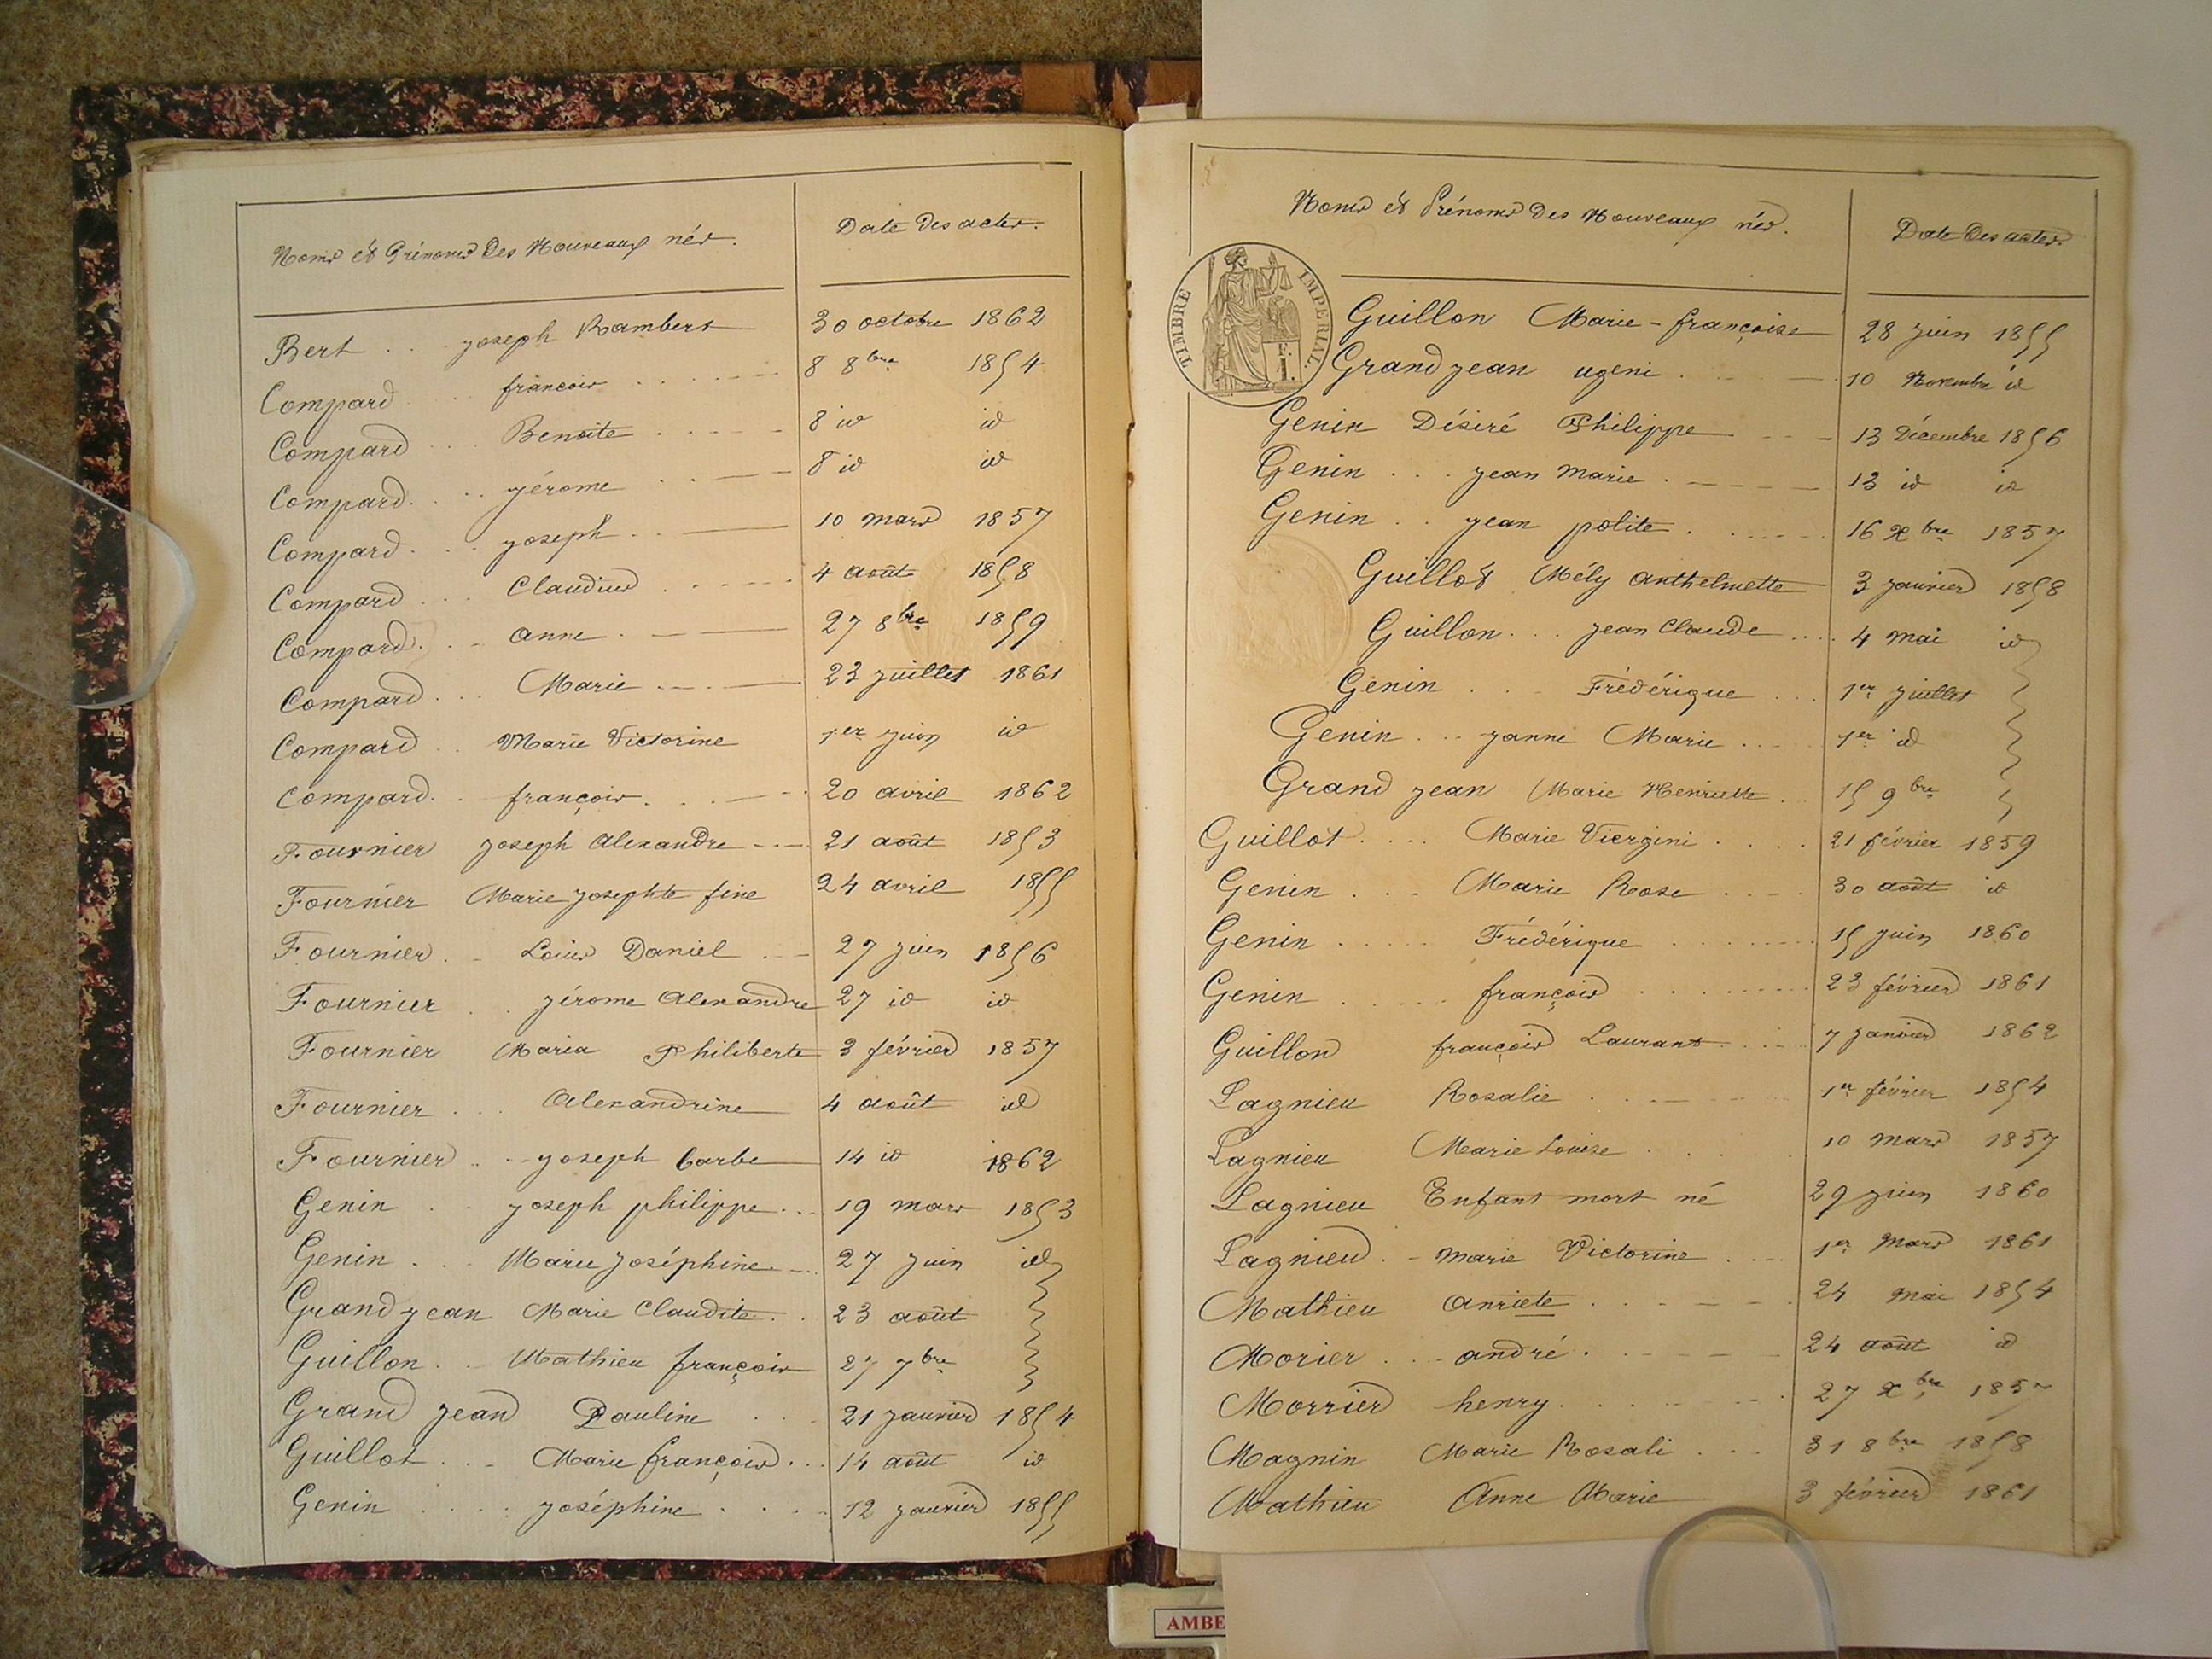 Noms et Prénoms Des Nouveaux nés. Date Des actes.
Bert .. joseph Rambert 30 octobre 1862
Compard francois 8 8bre 1854
Compard Benoite 8 id id
Compard jérome 8 id id
Compard joseph 10 mars 1857
Compard Claudius 4 août 1858
Compard anne 27 8bre 1859
Compard Marie 23 juillet 1861
Compard Marie Victorine 1er juin id
Compard françois 20 avril 1862
Fournier joseph Alexandre 21 août 1853
Fournier Marie josephte fine 24 avril 1855
Fournier Louis Daniel 27 juin 1856
Fournier jérome Alexandre 27 id id
Fournier Maria Philiberte 3 février 1857
Fournier Alexandrine 4 août id
Fournier joseph barbe 14 id 1862
Genin joseph philippe 19 mars 1853
Genin Marie joséphine 27 juin id
Grand jean Marie Claudite 23 août
Guillon Mathieu françois 27 7bre
Grand jean Pauline 21 janvier 1854
Guillot Marie françois 14 août id
Genin joséphine 12 janvier 1855
Noms et Prénoms Des Nouveaux nés. Date Des actes.
TIMBRE IMPERIAL.
Guillon Marie-françoise 28 juin 1855
Grand jean ugeni 10 Novembre id
Genin Désiré Philippe 13 Décembre 1856
Genin jean Marie 13 id id
Genin jean polite 16 xbre 1857
Guillot Mély anthelmette 3 janvier 1858
Guillon jean Claude 4 mai id
Genin Frédérique 1er juillet
Genin janne Marie 1er id
Grand jean Marie Henriette 15 9bre
Guillot Marie Viergini 21 février 1859
Genin Marie Rose 30 août id
Genin Frédérique 15 juin 1860
Genin françois 23 février 1861
Guillon françois Laurant 7 janvier 1862
Lagnieu Rosalie 1er février 1854
Lagnieu Marie Louise 10 mars 1857
Lagnieu Enfant mort né 29 juin 1860
Lagnieu Marie Victorine 1er Mars 1861
Mathieu anriete 24 mai 1854
Morier andré 24 août id
Morrier henry 27 xbre 1857
Magnin Marie Rosali 31 8bre 1858
Mathieu Anne Marie 3 février 1861
AMBE